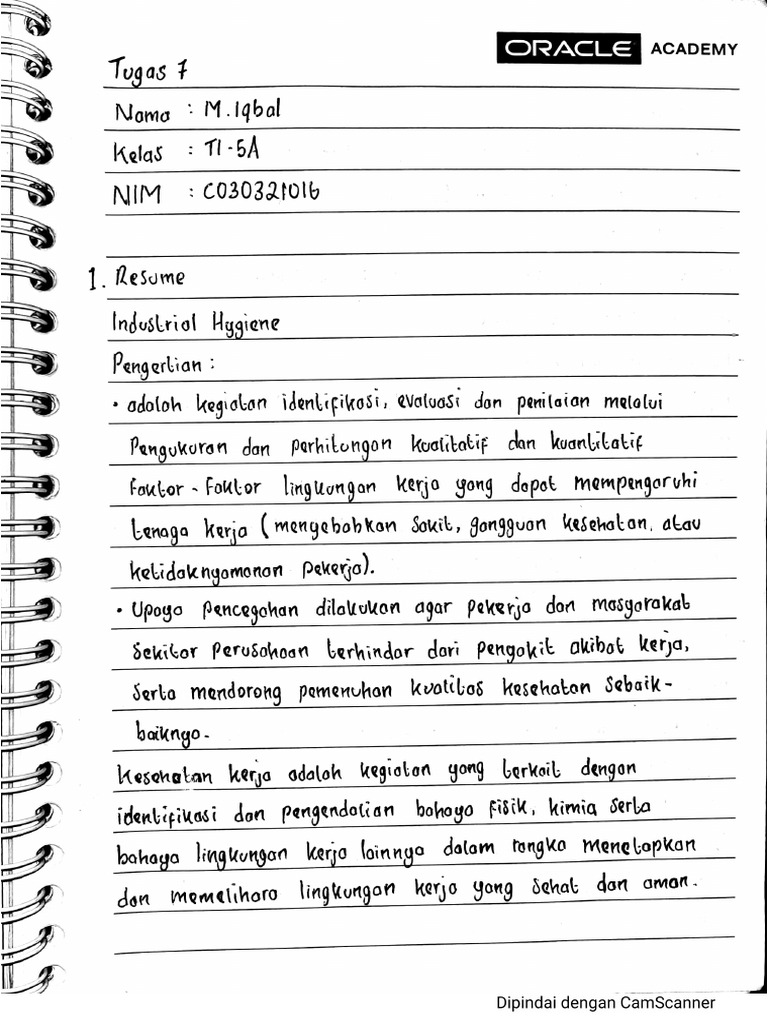 ORACLE ACADEMY
Tugas 7
Nama : M. Iqbal
Kelas : TI-5A
NIM : C030321016
1. Resume
Industrial Hygiene
Pengertian :
• adalah kegiatan identifikasi, evaluasi dan penilaian melalui
Pengukuran dan perhitungan kualitatif dan kuantitatif
faktor - faktor lingkungan kerja yang dapat mempengaruhi
tenaga kerja (menyebabkan sakit, gangguan kesehatan, atau
ketidaknyamanan pekerja).
• Upaya pencegahan dilakukan agar pekerja dan masyarakat
sekitar perusahaan terhindar dari pengakit akibat kerja,
serta mendorong pemenuhan kualitas kesehatan sebaik-
baiknya.
Kesehatan kerja adalah kegiatan yang terkait dengan
identifikasi dan pengendalian bahaya fisik, kimia serta
bahaya lingkungan kerja lainnya dalam rangka menetapkan
dan memelihara lingkungan kerja yang sehat dan aman.
Dipindai dengan CamScanner